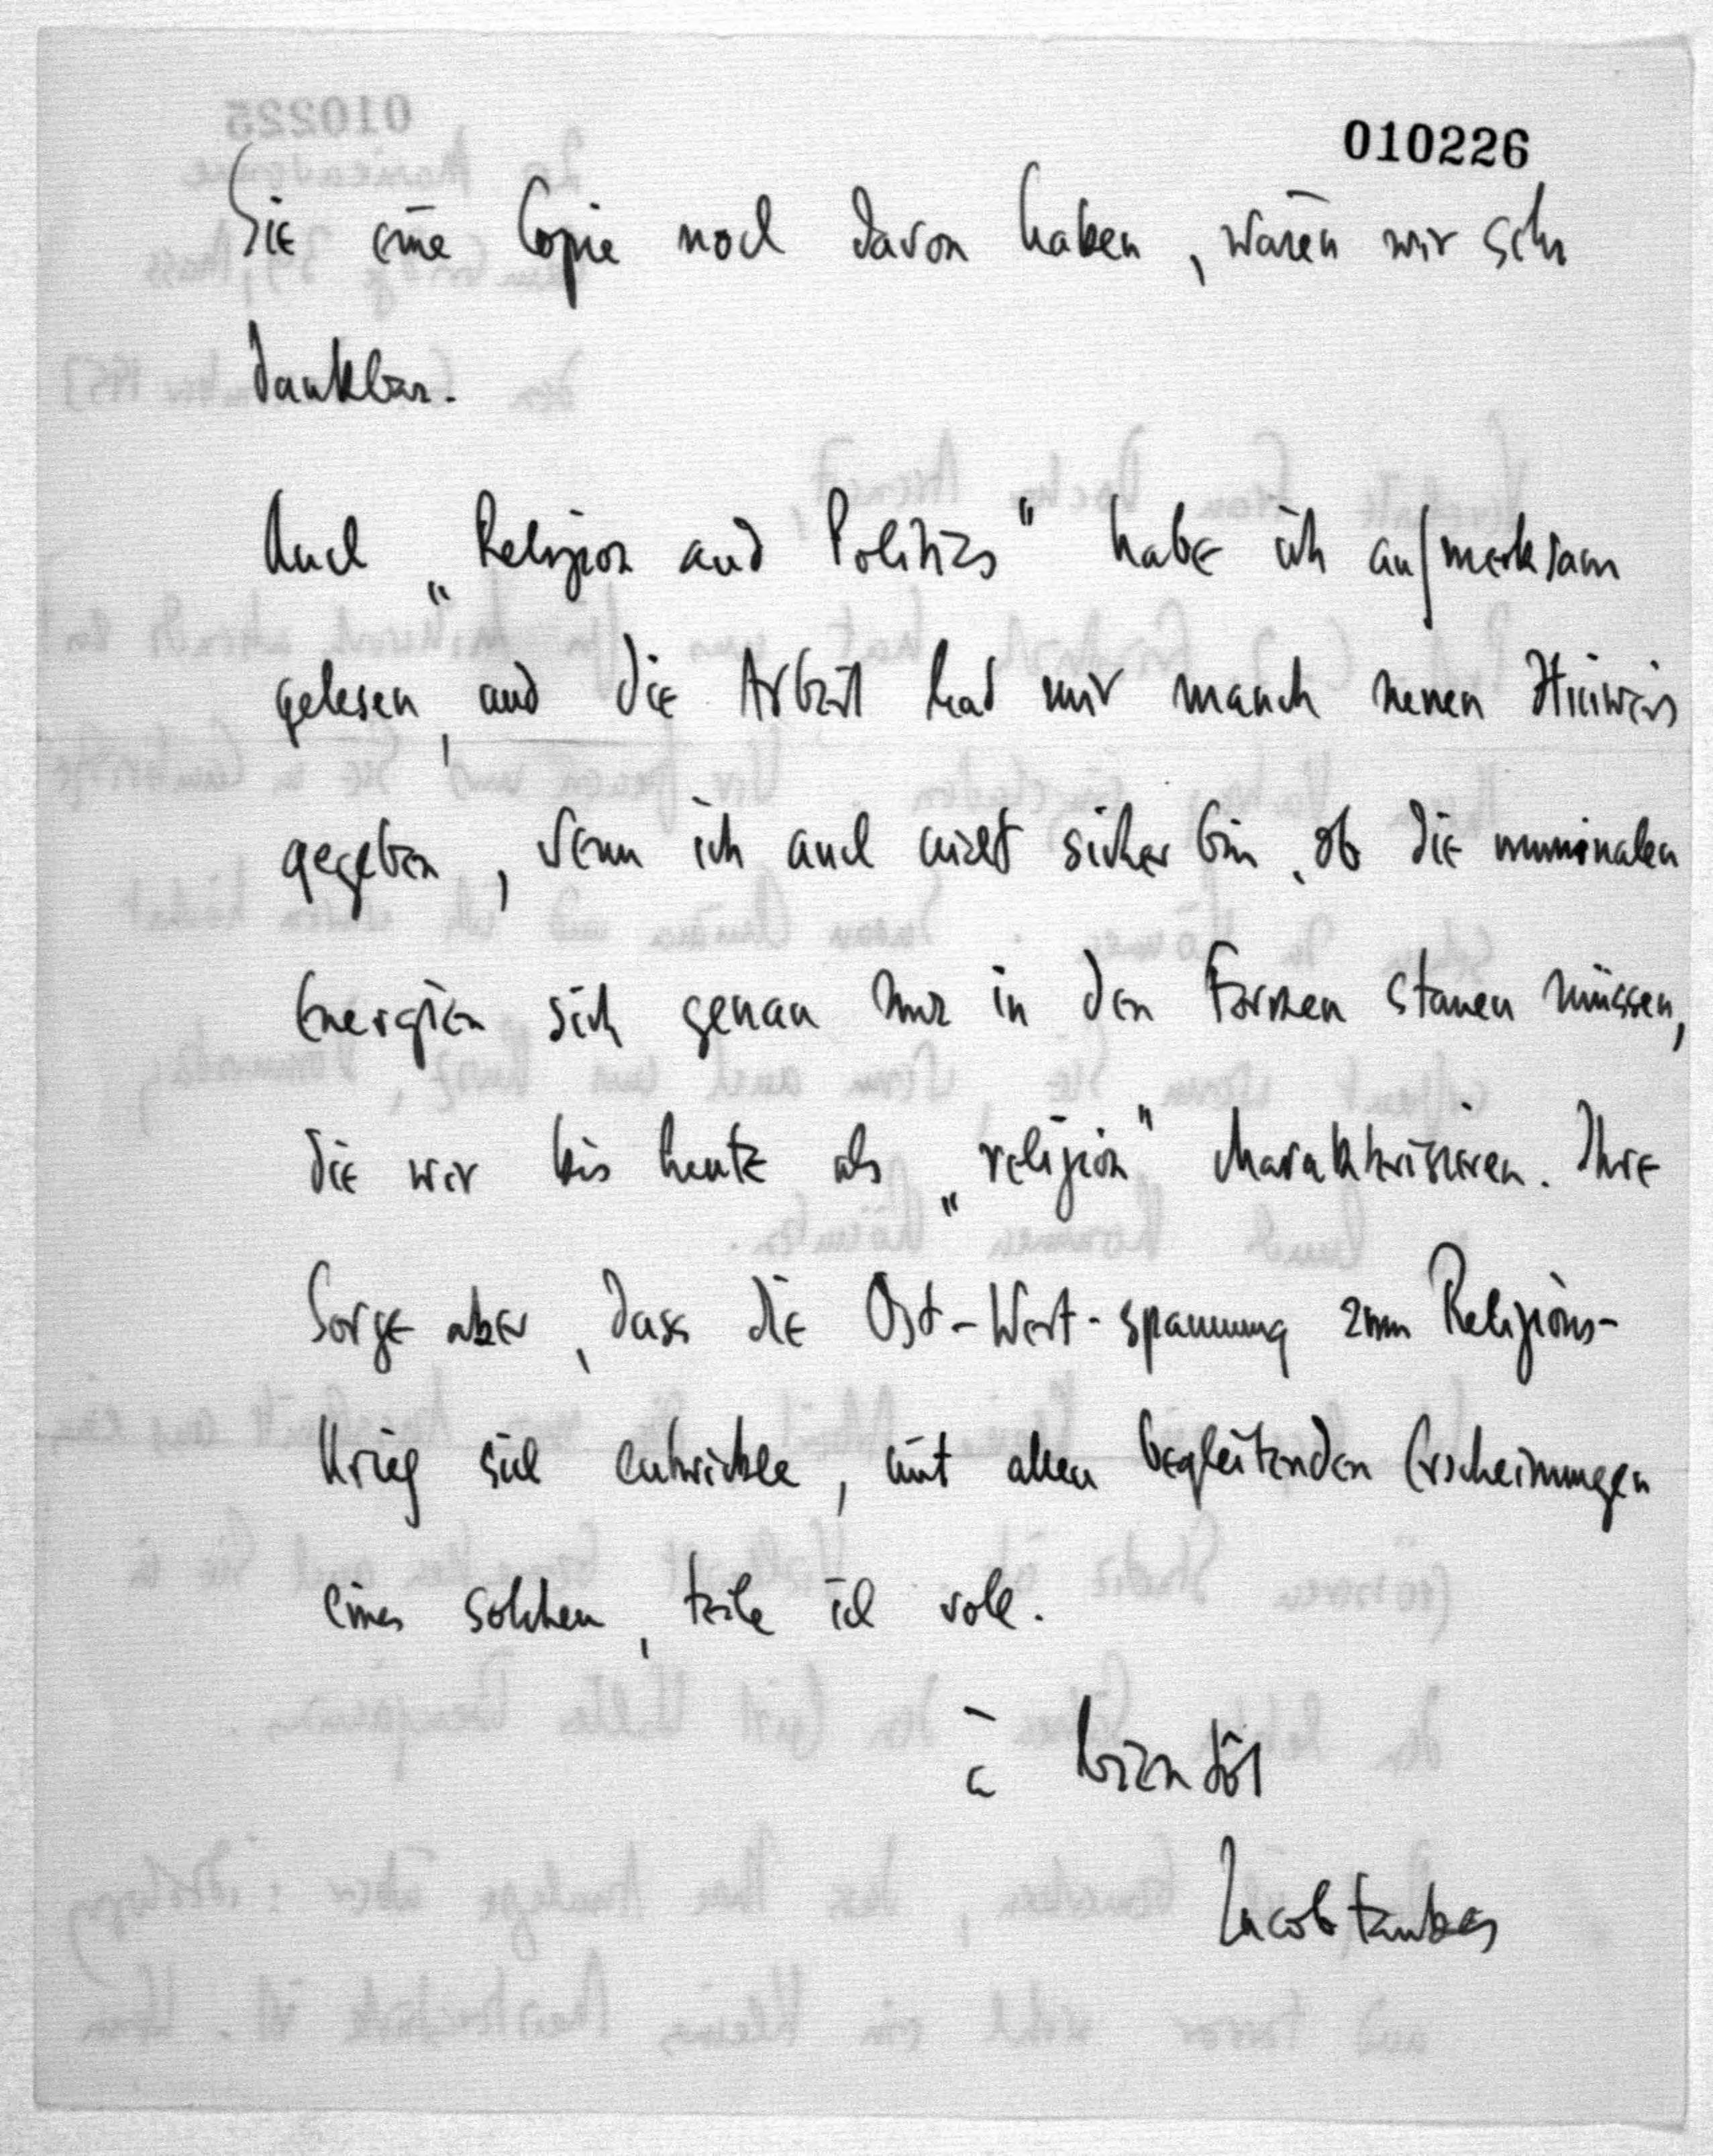 010226
Sie eine Copie noch davon haben, wären wir sehr
dankbar.
Auch „Religion and Politics" habe ich aufmerksam
gelesen, und die Arbeit hat mir manch neuen Hinweis
gegeben, wenn ich auch nicht sicher bin, ob die numinalen
Energien sich genau nur in den Formen stauen müssen,
die wir bis heute als „religion" charakterisieren. Ihre
Sorge aber, dass die Ost-West-spannung zum Religions-
krieg sich entwickle, mit allen begleitenden Erscheinungen
eines solchen, teile ich voll.
à bientôt
Jacob Taubes